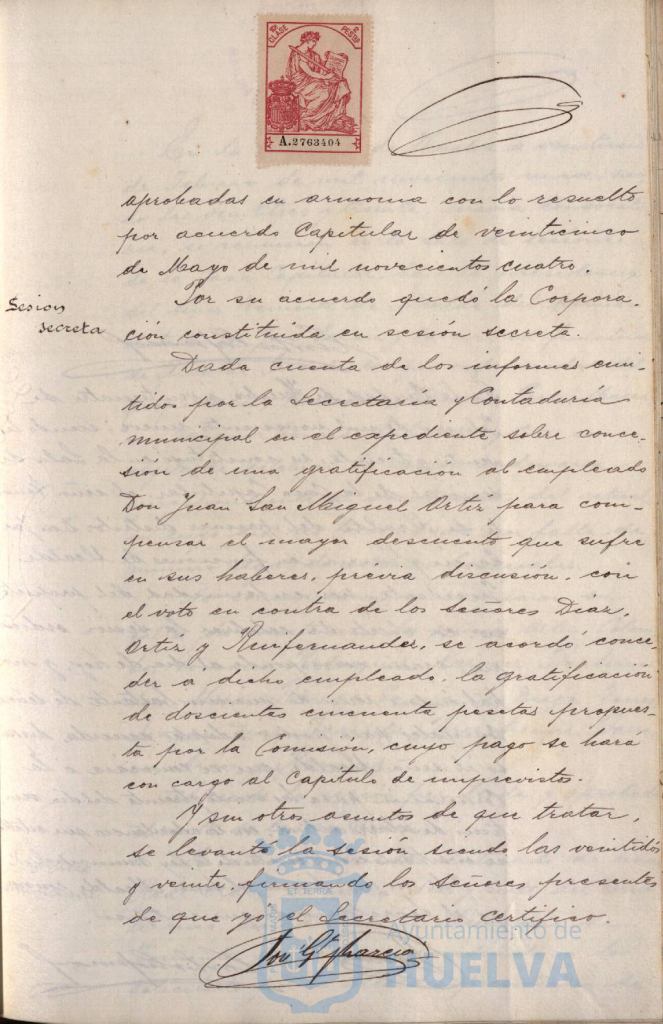 10ª CLASE
2 PESTAS
A.2763404
aprobadas en armonia con lo resuelto
por acuerdo Capitular de veinticinco
de Mayo de mil novecientos cuatro.
Sesion
secreta
Por su acuerdo quedó la Corpora-
ción constituida en sesión secreta.
Dada cuenta de los informes emi-
tidos por la Secretaría y Contaduría
municipal en el expediente sobre conce-
sión de una gratificación al empleado
Don Juan San Miguel Ortiz para com-
pensar el mayor descuento que sufre
en sus haberes, prévia discusión, con
el voto en contra de los Señores Diaz,
Ortiz y Ruifernandez, se acordó conce-
der á dicho empleado la gratificación
de doscientas cincuenta pesetas propues-
ta por la Comisión, cuyo pago se hará
con cargo al Capitulo de imprevistos.
Y sin otros asuntos de que tratar,
se levantó la sesión siendo las veintidós
y veinte, firmando los Señores presentes
de que yó el Secretario certifico.
Ayuntamiento de
HUELVA